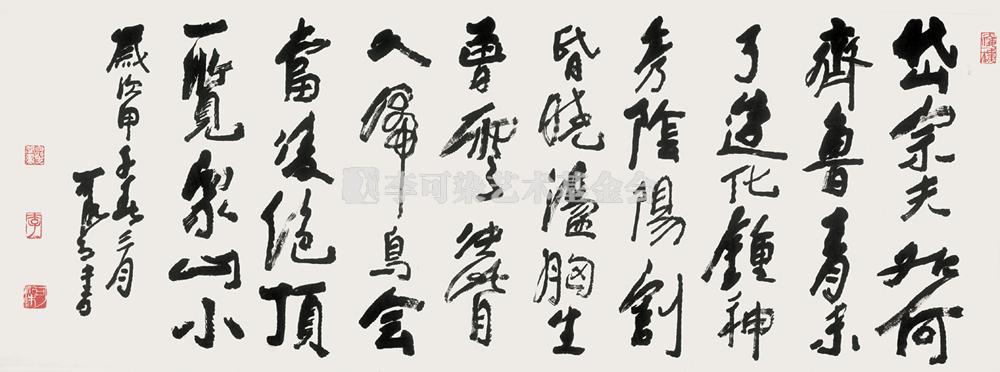 岱宗夫如何
齊魯青未
了造化鍾神
秀陰陽割
昏曉盪胸生
曾雲決眥
入歸鳥会
當凌絕頂
一覽眾山小
歲次甲子春三月
可染書
李
可染
李可染艺术基金会